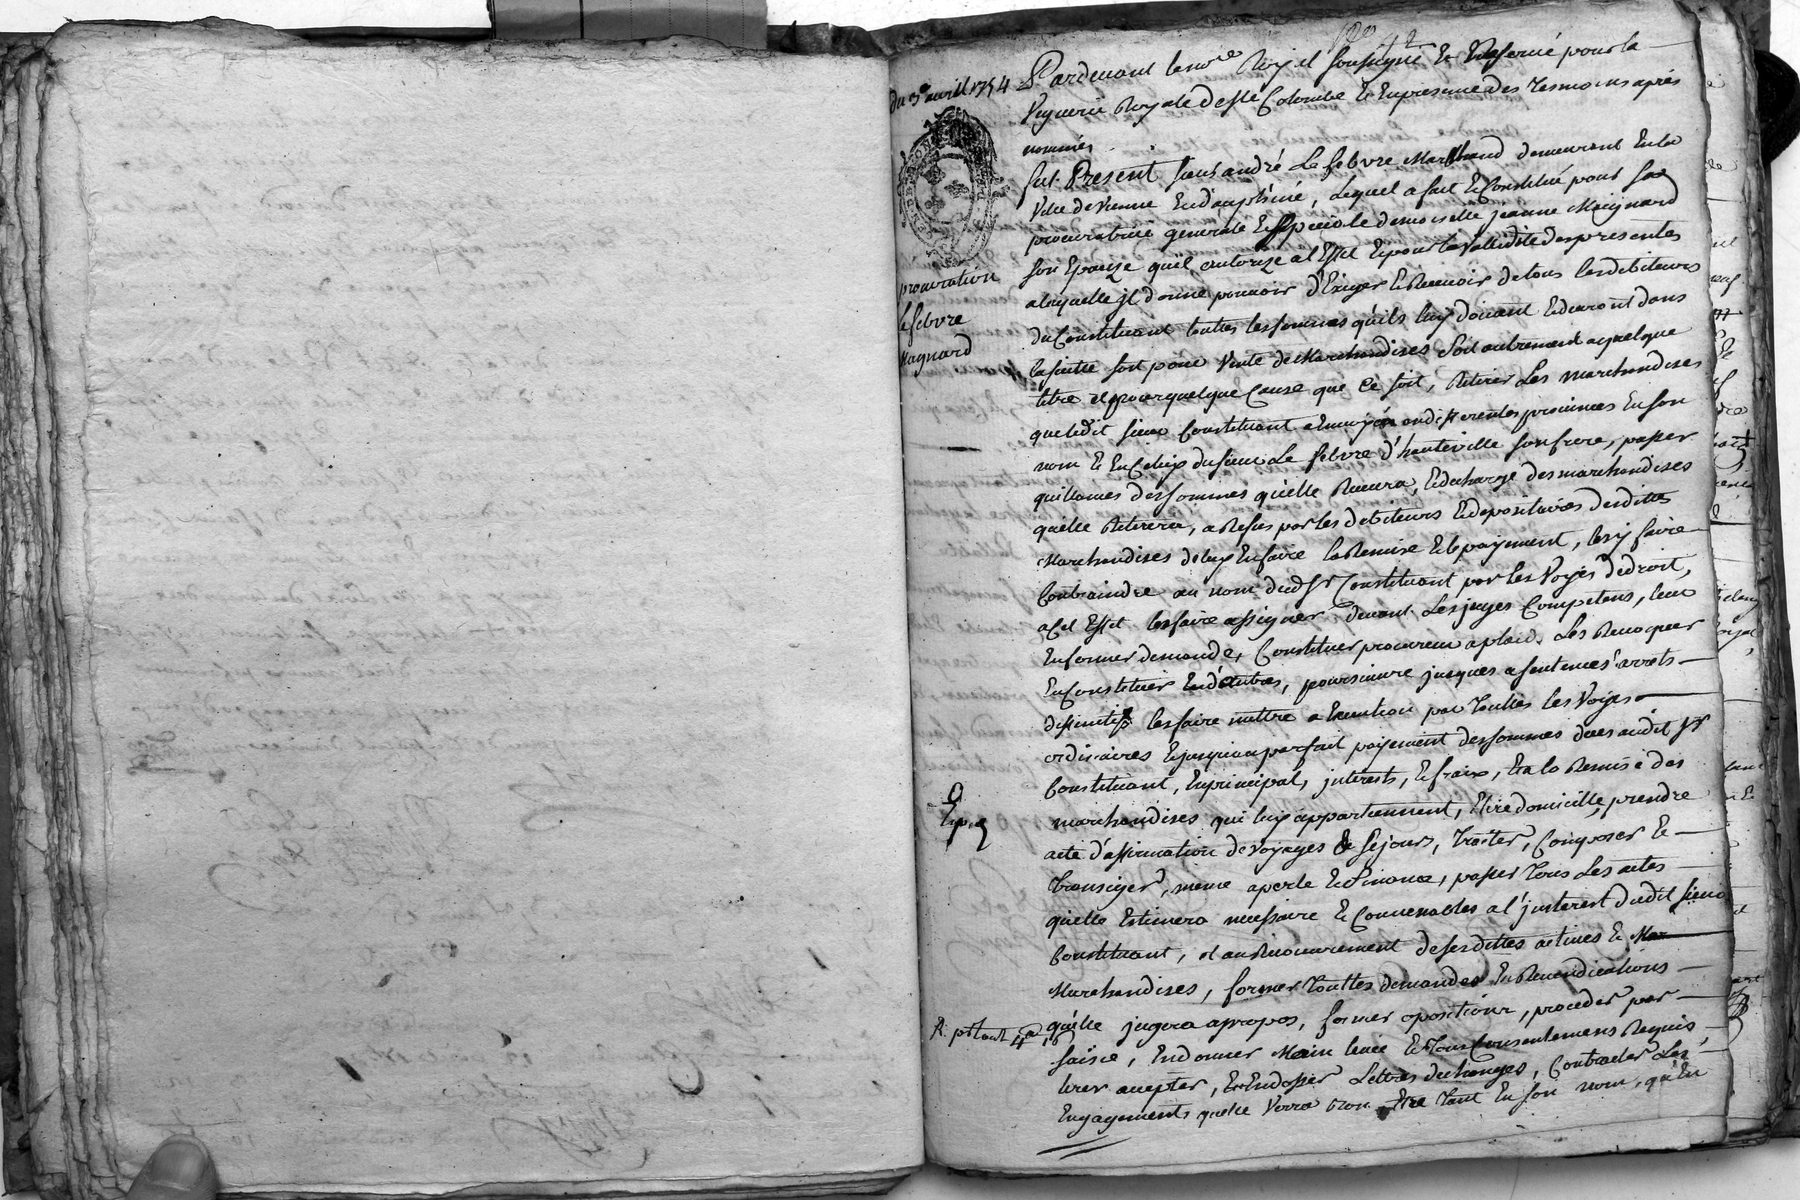 du 3e avril 1754
procuration
Lefebvre
Magnard
Exp.
Pardevant le nore Royal soussigné et Reservé pour la
Viguerie Royale de Ste Colombe et En presence des Temoins après
nommés
fut Present sieur andré Lefebvre Marchand demeurant En la
Ville de Vienne En dauphiné, Lequel a fait et Constitué pour sa
procuratrice generale et speciale demoiselle jeanne Magnard
son Epouze qu'il autorize a l'Effet et pour la validité des presentes
a laquelle jl donne pouvoir d'Exiger et Recevoir de tous les debiteurs
du Constituant touttes les sommes qu'ils luy doivent et devront dans
la suitte soit pour Vente de Marchandises soit autrement a quelque
titre et pour quelque Cause que Ce soit, Retirer Les marchandises
que ledit sieur Constituant a Envoyé en differentes provinces En son
nom et En Celuy du sieur Le febvre d'hauteville son frere, passer
quittances des sommes qu'elle Recevra, et decharge des marchandises
qu'elle Retirera, a Refus par les debiteurs et depositaires desdittes
Marchandises de luy En faire la Remise et le payement, les y faire
Contraindre au nom dud. sr Constituant par les Voyes de droit,
a Cet Effet les faire assigner devant Les juges Competens, leur
En former demande, Constituer procureur a plaid. Les Revoquer
En Constituer d'autres, poursuivre jusques a sentences arrets
definitifs les faire mettre a Execution par Touttes les Voyes
ordinaires et jusqu'au parfait payement des sommes dües audit sr
Constituant, En principal, jnterests, et fraix, Et a la Remise des
marchandises qui luy appartiennent, Elire domicille, prendre
acte d'affirmation de Voyages & Sejours, Traiter, Composer et
Transiger, meme a perte et finance, passer Tous Les actes
qu'elle Estimera necessaire et Convenables a l'jnterest dudit sieur
Constituant, et au Recouvrement de sesdittes actives et
Marchandises, former Touttes demandes En Revendications
qu'elle jugera apropos, former opositions, proceder par
saisie, En donner Main levée et Tous Consentemens Requis
tirer accepter, Et Endosser Lettres de change, Contracter Les
Engagements qu'elle Verra bon Etre Tant En son nom, qu'En